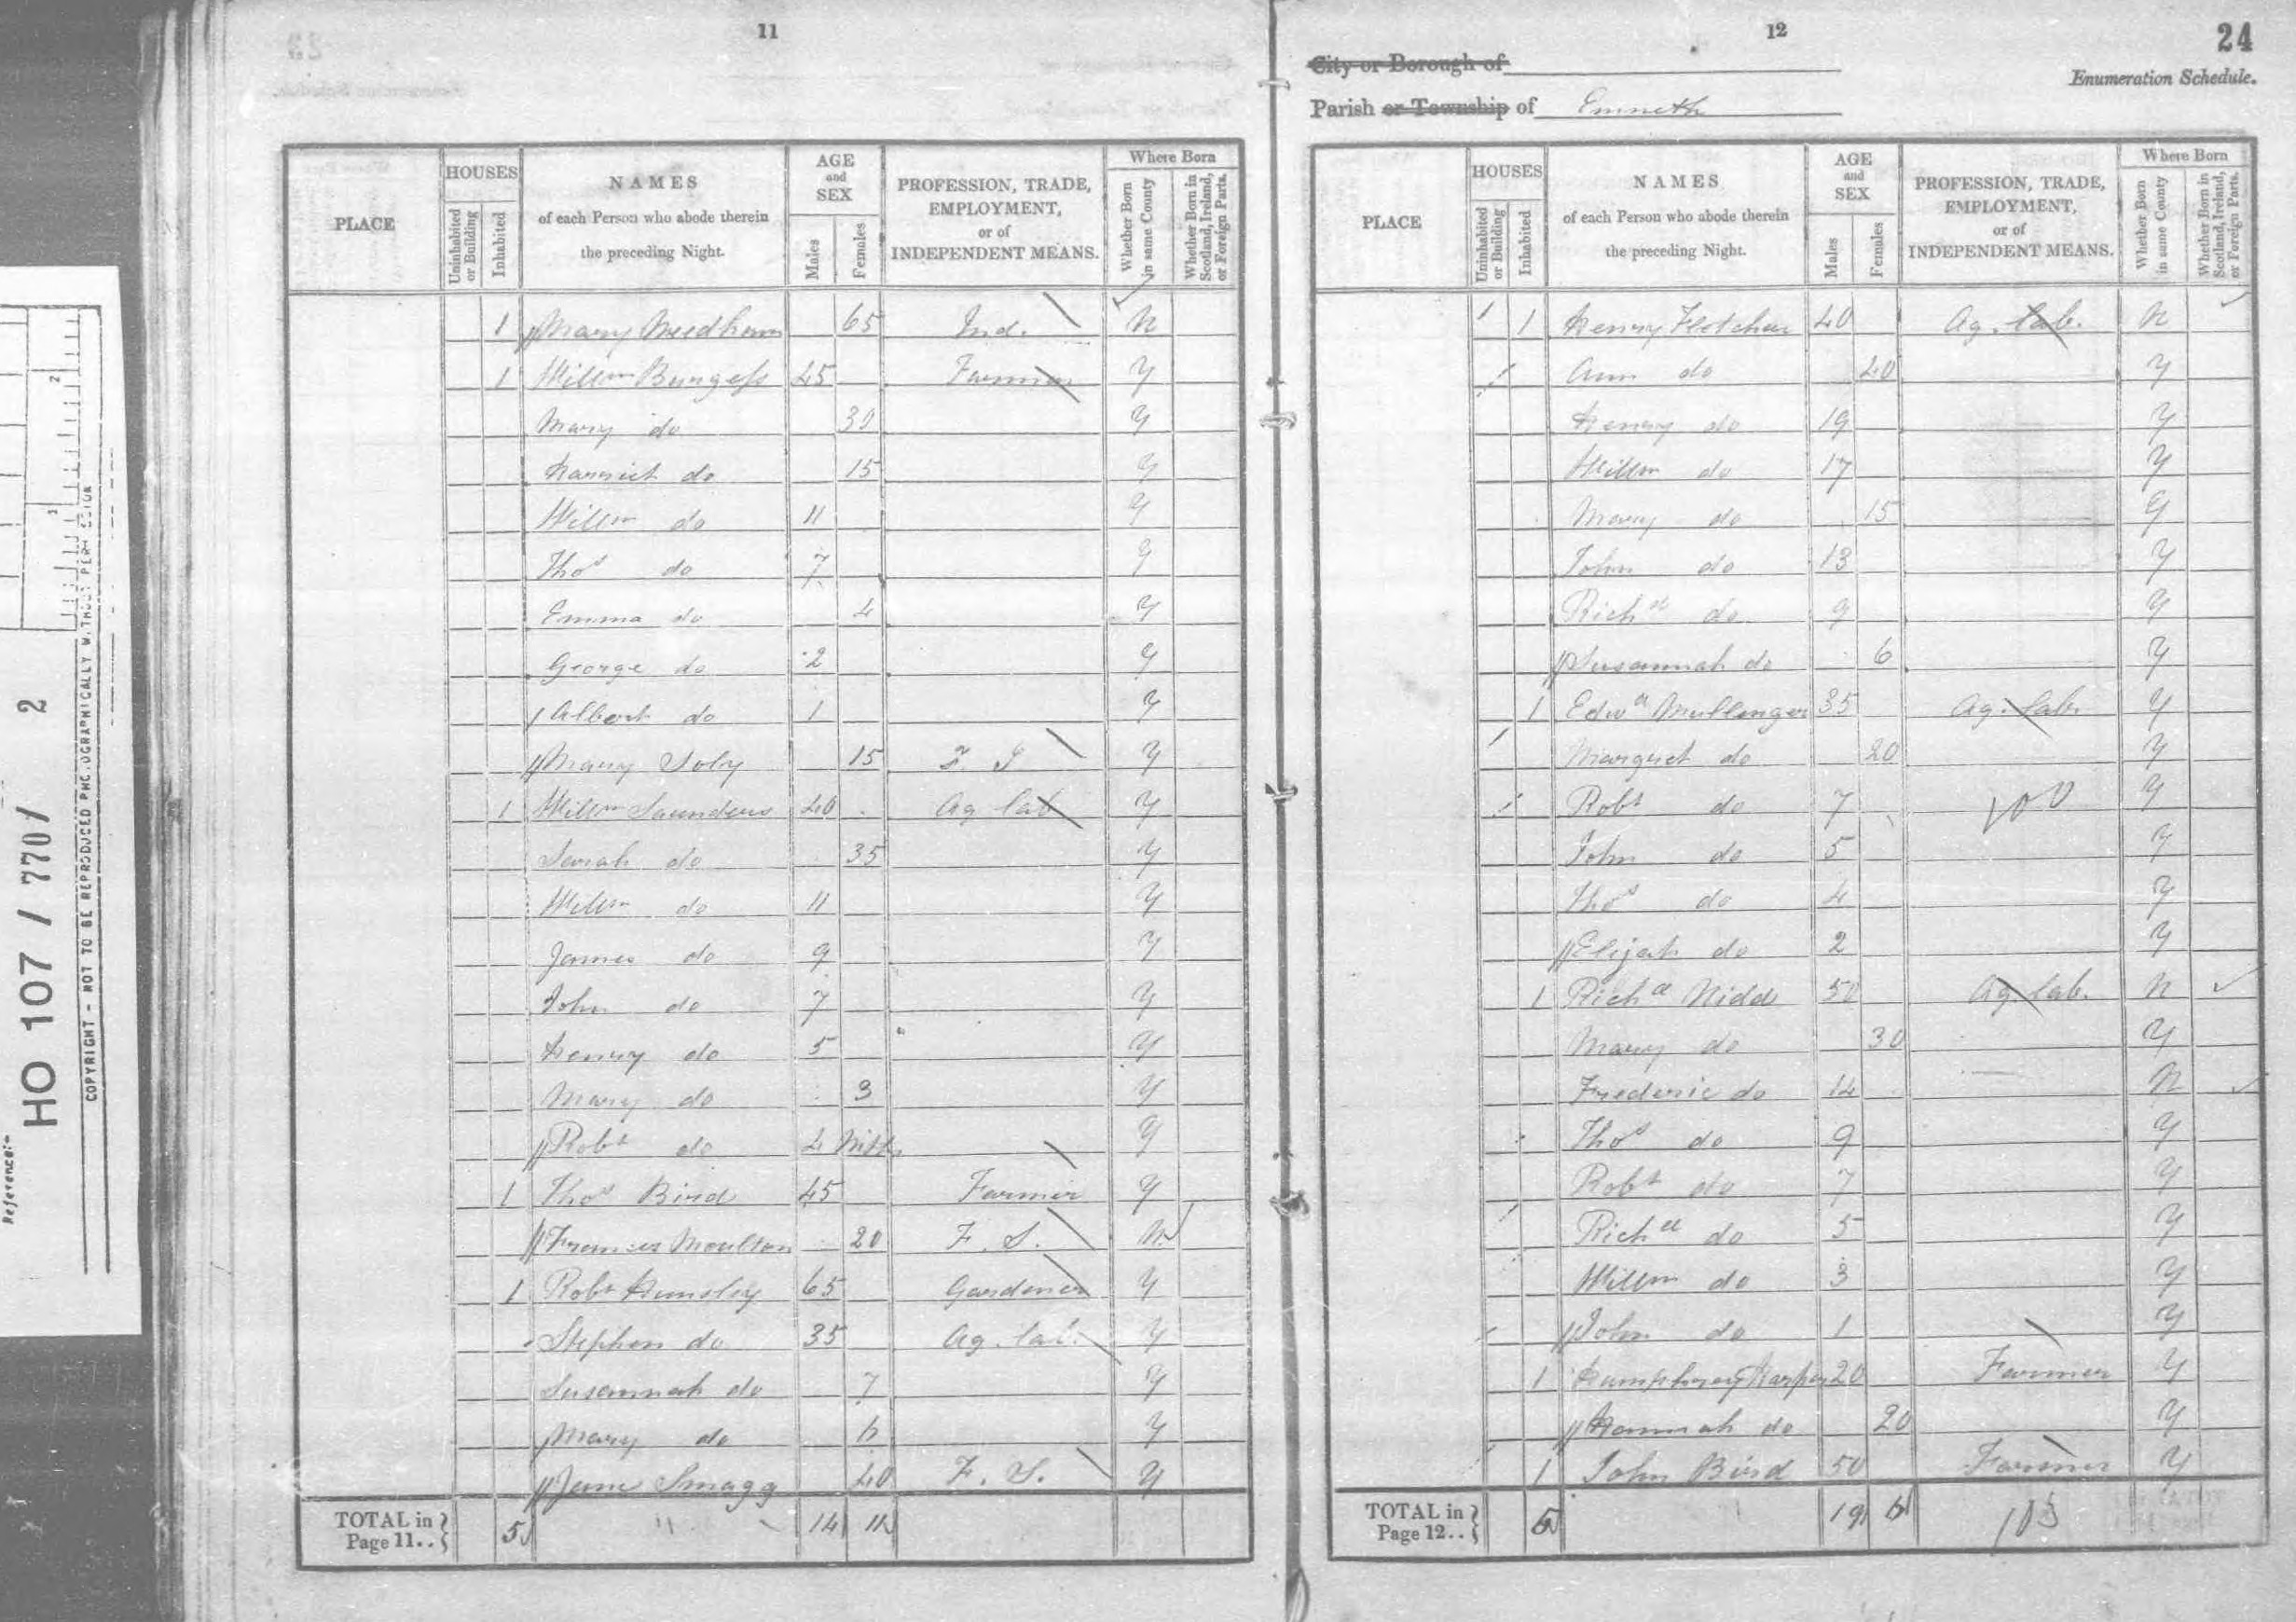 11
PLACE
HOUSES
Uninhabited or Building
Inhabited
NAMES
of each Person who abode therein
the preceding Night.
AGE
and
SEX
Males
Females
PROFESSION, TRADE,
EMPLOYMENT,
or of
INDEPENDENT MEANS.
Where Born
Whether Born in same County
Whether Born in Scotland, Ireland, or Foreign Parts.
1 Mary Needham 65 Ind. N
1 Willm Burgess 45 Farmer Y
Mary do 30 Y
Harriet do 15 Y
Willm do 11 Y
Thos do 7 Y
Emma do 4 Y
George do 2 Y
Albert do 1 Y
Mary Soly 15 F. S Y
1 Willm Saunders 40 Ag lab Y
Sarah do 35 Y
Willm do 11 Y
James do 9 Y
John do 7 Y
Henry do 5 Y
Mary do 3 Y
Robt do 4 Mths Y
1 Thos Bird 45 Farmer Y
Frances Moulton 20 F. S. N
1 Robt Hunsley 65 Gardener Y
Stephen do 35 Ag. lab. Y
Susannah do 7 Y
Mary do 6 Y
Jane Smagg 40 F. S. Y
TOTAL in Page 11.. 5 14 11
12
24
City or Borough of
Enumeration Schedule.
Parish or Township of Emneth
PLACE
HOUSES
Uninhabited or Building
Inhabited
NAMES
of each Person who abode therein
the preceding Night.
AGE
and
SEX
Males
Females
PROFESSION, TRADE,
EMPLOYMENT,
or of
INDEPENDENT MEANS.
Where Born
Whether Born in same County
Whether Born in Scotland, Ireland, or Foreign Parts.
1 Henry Fletcher 40 Ag. lab. N
Ann do 40 Y
Henry do 19 Y
Willm do 17 Y
Mary do 15 Y
John do 13 Y
Richd do 9 Y
Susannah do 6 Y
1 Edwd Mullenger 35 Ag. lab. Y
Margret do 20 Y
Robt do 7 Y
John do 5 Y
Thos do 4 Y
Elijah do 2 Y
1 Richd Nidd 50 Ag lab. N
Mary do 30 Y
Frederic do 14 N
Thos do 9 Y
Robt do 7 Y
Richd do 5 Y
Willm do 3 Y
John do 1 Y
1 Humphrey Harper 20 Farmer Y
Hannah do 20 Y
1 John Bird 50 Farmer Y
TOTAL in Page 12.. 5 19 6
HO 107 / 770 / 2
Reference:-